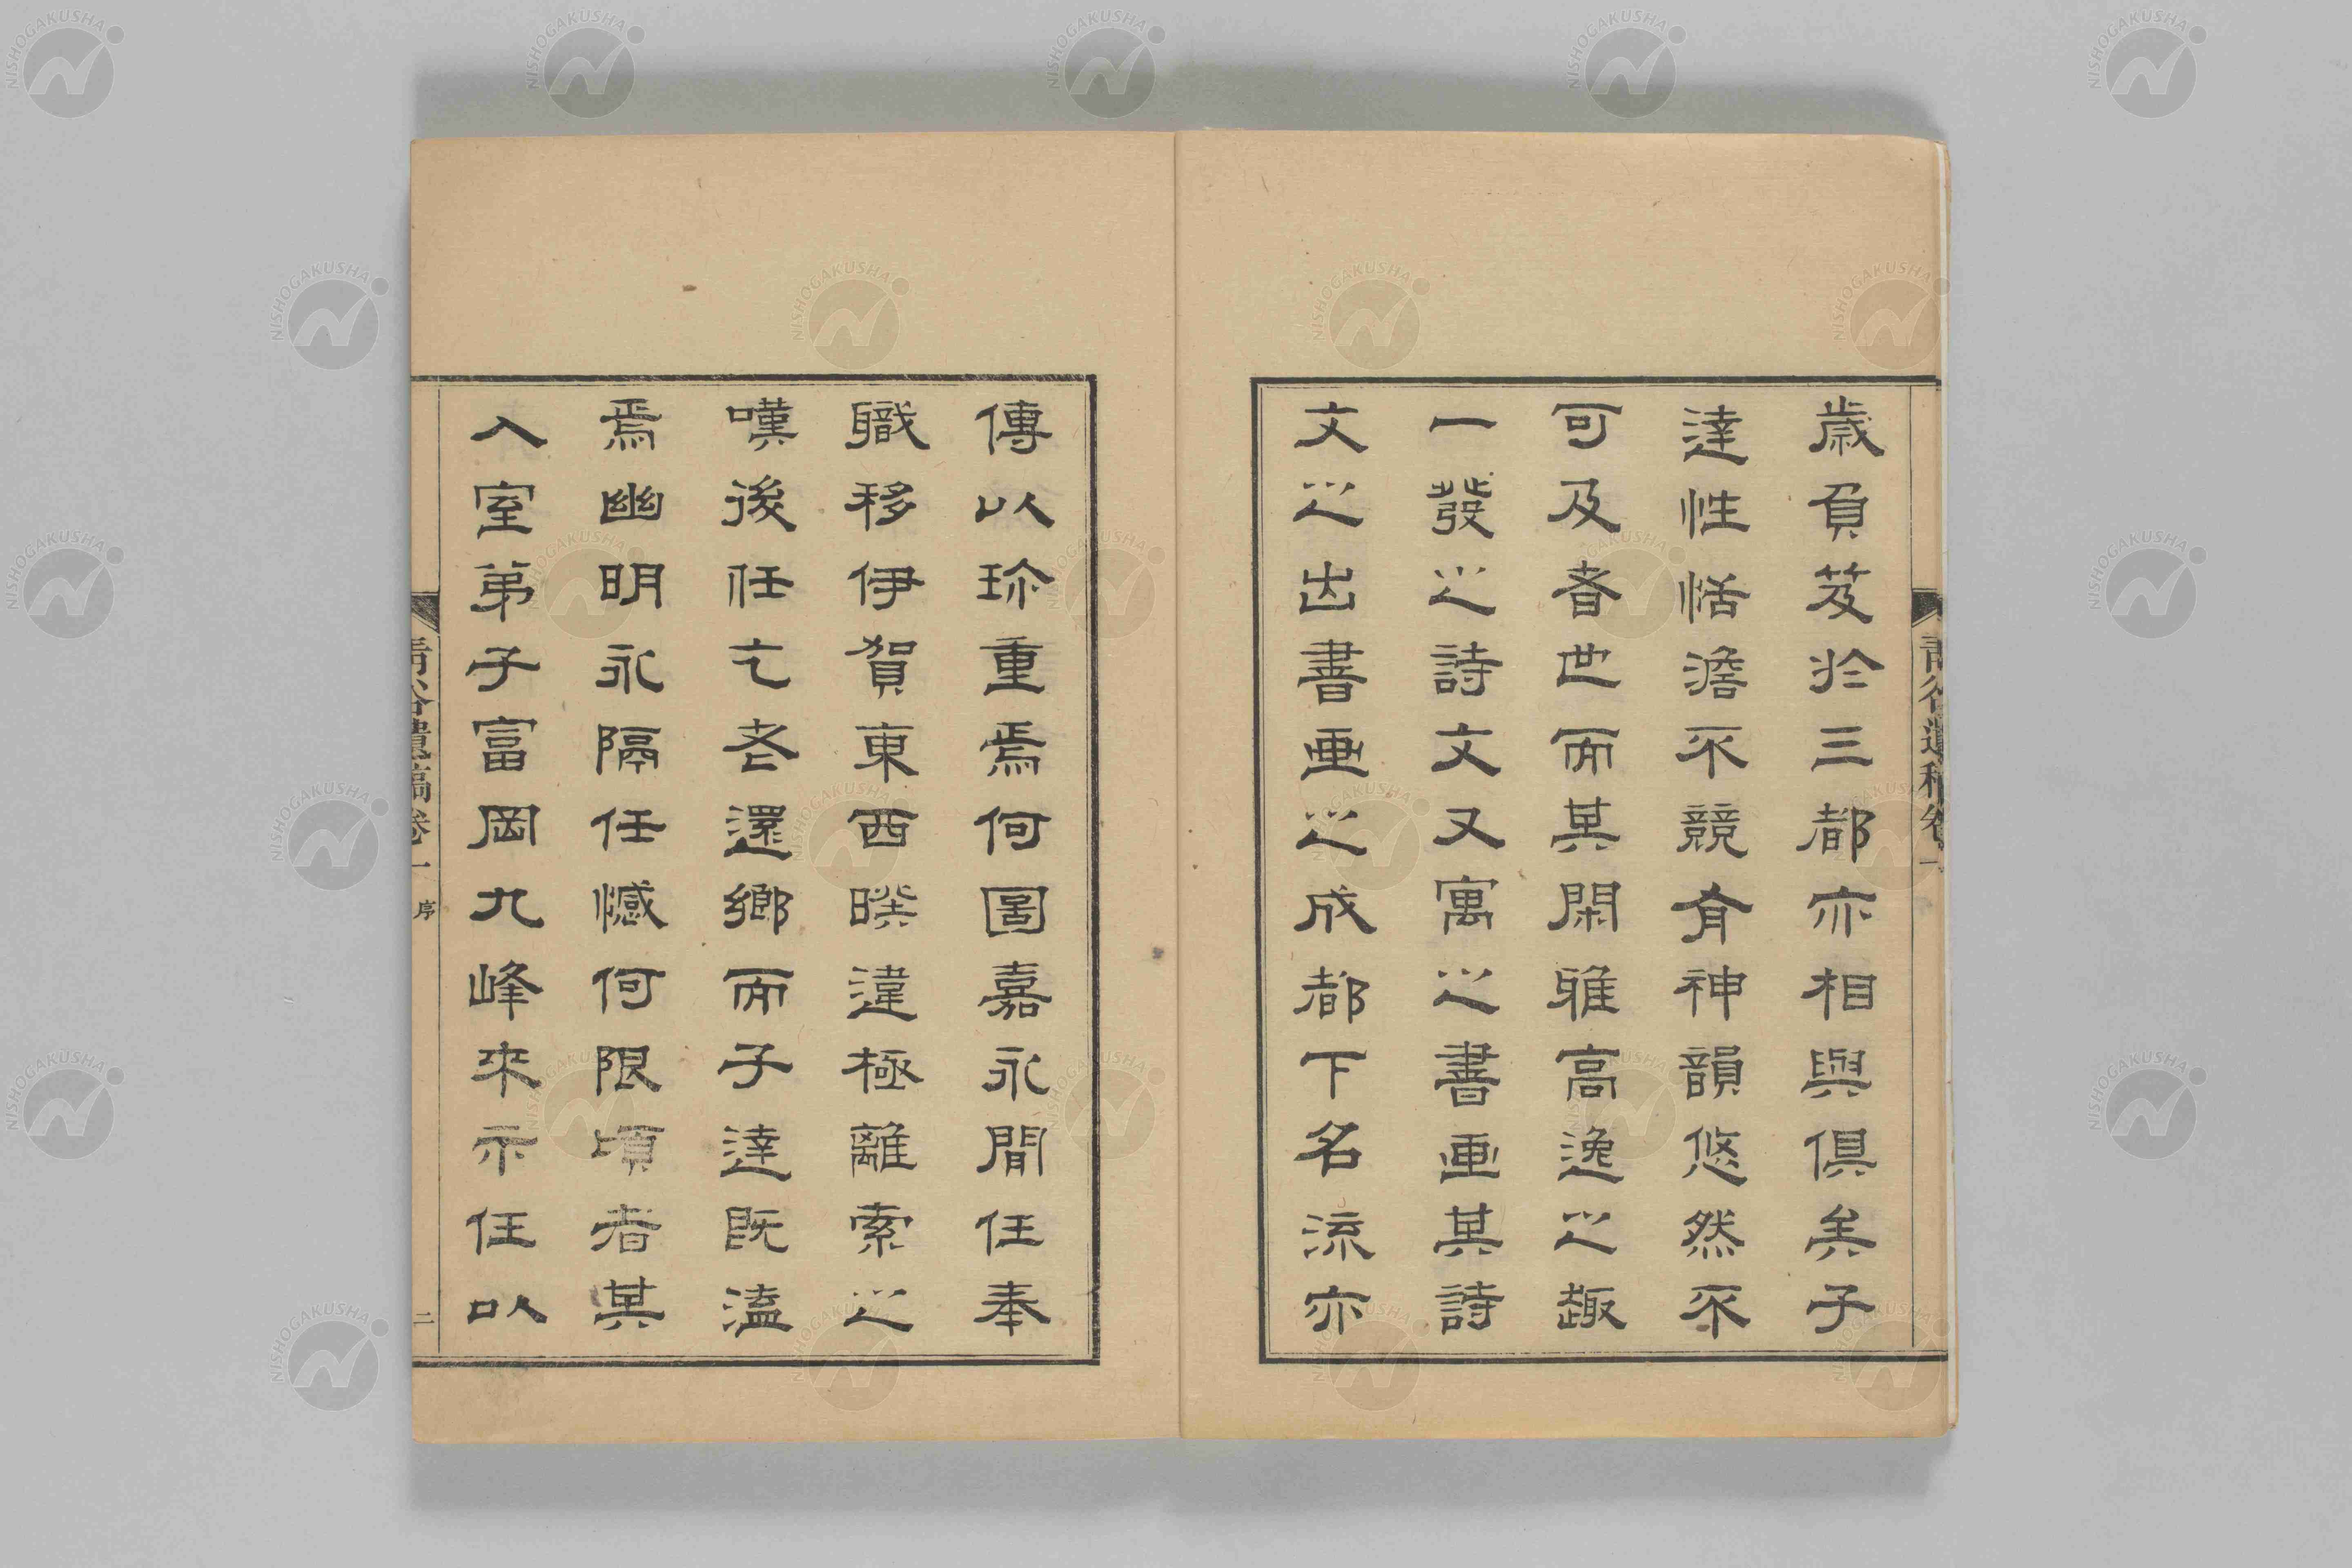 歲負笈於三都亦相與俱矣子
達性恬澹不競有神韻悠然不
可及者世而其閑雅高逸之趣
一發之詩文又寓之書画其詩
文之出書画之成都下名流亦
傳以珎重焉何圖嘉永間任奉
職移伊賀東西暌違極離索之
嘆後任亡老還鄉而子達既溘
焉幽明永隔任憾何限頃者其
入室弟子富岡九峰来示任以
青谷遺稿卷一
青谷遺稿卷一 序 二
NISHOGAKUSHA